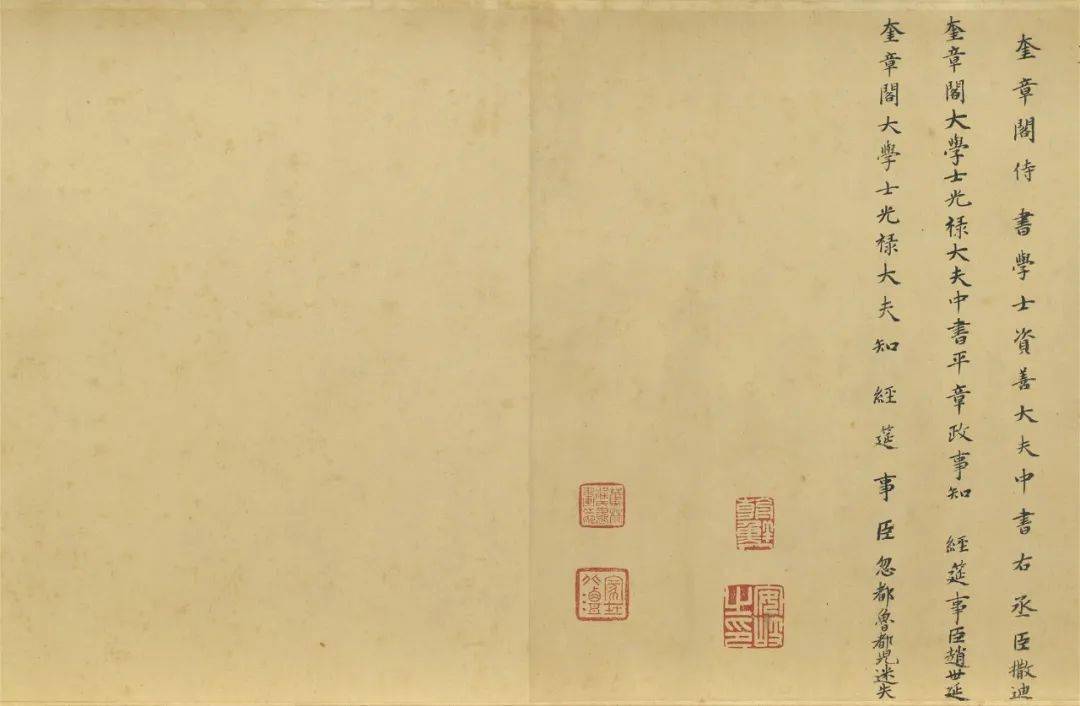 奎章閣侍書學士資善大夫中書右丞臣撒迪
奎章閣大學士光禄大夫中書平章政事知 經筵事臣趙世延
奎章閣大學士光禄大夫知 經筵事臣忽都魯都兒迷失
安岐之印